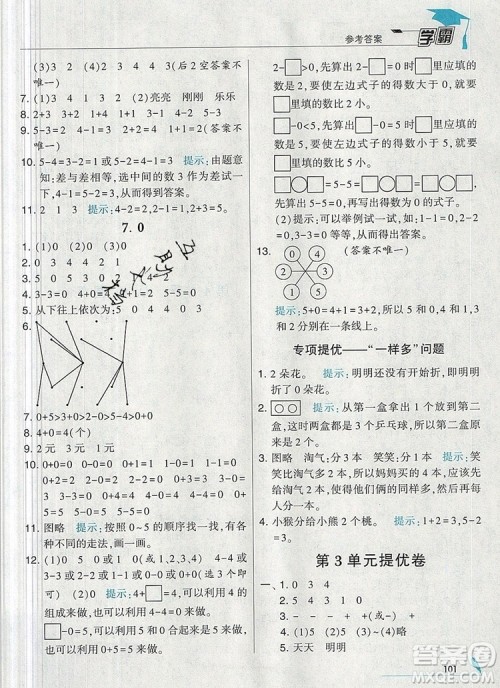 参考答案
学霸
(3)3 2 (4)5 4 3 (后2空答案不
唯一)
7. (1)3 4 1 3 2 (2)亮亮 刚刚 乐乐
8. 4 4 3 4 1 2
9. 5-3=2 4-2=2 1+1=2(答案不
唯一)
10. 5-4=3-2=1或5-2=4-1=3 提示:由题意
知:差与差相等,选中间的数3作为差试一
试,从而得到答案。
11. 2 1 3 提示:4-2=2,2+1=3。
7. 0
1. (1)0 (2)0 (3)0 4
3. 5 0 5 4 3 0 2
4. 3-3=0 4+0=4 5-5=0
5. 从下往上依次为:5 0 4 4 0 3
6.
7. 0+5>0+2>0+1>0+0
8. 4+0=4(个)
9. 2元 3元 1元
10. 0+0=0 0+1=1 0+2=2 0+3=3
0+4=4 0+5=5 0-0=0 1-0=1
2-0=2 3-0=3 4-0=4 5-0=5
11. 图略 提示:按照0~5的顺序找一找,有
不同的走法,画一画。
12. (1)0 5 1 4 2 3 或4-0或
3-3 2-2或5-5 4-4或
3-3(答案不唯一) 提示:可以利用4的
组成来做,也可以利用5的组成来做。
□-0=5,可以利用5减几来做。
2-□=5,先算出2-0=2,□里应填的
数是2,要使左边式子的得数大于0,□
里填的数比2小。
□-0<5,先算出5-0=5,□里应填的
数是5,要使左边式子的得数小于5,□
里填的数比5小。
□-□=□-□=□-□,先写出一个得
数是0的式子,再写出得数为0的式子。
(2)提示:可以举例试一试,如:
1-1=0,0+0=0。
13. (答案不唯一)
提示:5+0=4+1=3+2=5,所以5和
0,4和1,3和2分别在一条线上。
专项提优——“一样多”问题
1. 2朵花。 提示:明明还没有开始折,即明
明折了0朵花。
2. ○○ 提示:从第一盒拿2个放入第二
盒,这时两盒都有3个乒乓球,所以第二盒
原来有1个乒乓球。
3. 图略 淘气:分3本 笑笑:分1本 提示:笑
笑比淘气多2本,所以妈妈买的4本,应该先
给淘气2本,剩余的2本再平均分给两人。
4. 小猴分给小熊2个桃。 提示:1+2=3,5-
2=3。
第3单元提优卷
一、1. 0 3 4
2. 5 4 3 1 0
3. - - + - + -
4. 天天 明明
101